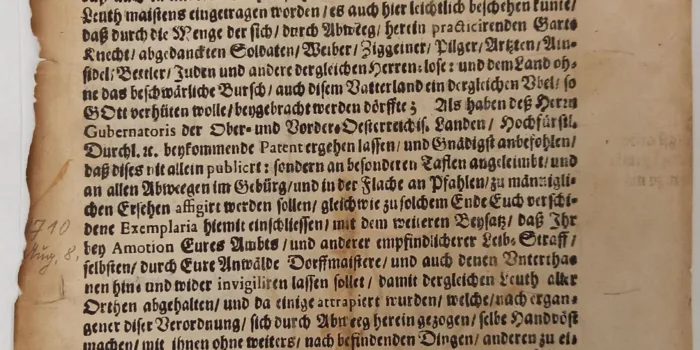 Leuth maistens eingetragen worden / es auch hier leichtlich beschehen kunte /
daß durch die Menge der sich / durch Abweeg / herein practicirenden Gart-
Knecht / abgedanckten Soldaten / Weiber / Ziggeiner / Pilger / Artzten / Ain-
sidel / Bettler / Juden und andere dergleichen Herren-lose : und dem Land oh-
ne das beschwärliche Bursch / auch disem Vatterland ein dergleichen Vbel / so
GOtt verhüten wolle / beygebracht werden dörffte ; Als haben deß Herrn
Gubernatoris der Ober- und Vorder-Oesterreichis. Landen / Hochfürstl.
Durchl. ꝛc. beykommende Patent ergehen lassen / und Gnädigst anbefohlen /
daß dises nit allein publicert : sondern an besonderen Taflen angeleimbt / und
an allen Abweegen im Gebürg / und in der Flache an Pfahlen / zu männigli-
chen Ersehen affigirt werden sollen / gleich wie zu solchem Ende Euch verschi-
dene Exemplaria hiemit einschliessen / mit dem weiteren Beysatz / daß Ihr
bey Amotion Eures Ambts / und anderer empfindlicherer Leibs-Straff /
selbsten / durch Eure Anwälde Dorffmaistere / und auch denen Vnterthan-
nen hin- und wider invigiliren lassen sollet / damit dergleichen Leuth aller
Orthen abgehalten / und da einige attrapiert wurden / welche / nach ergan-
gener diser Verordnung / sich durch Abweeg herein gezogen / selbe Handvöst
machen / mit ihnen ohne weiters / nach befindenden Dingen / anderen zu ei-
1710
Aug. 8.